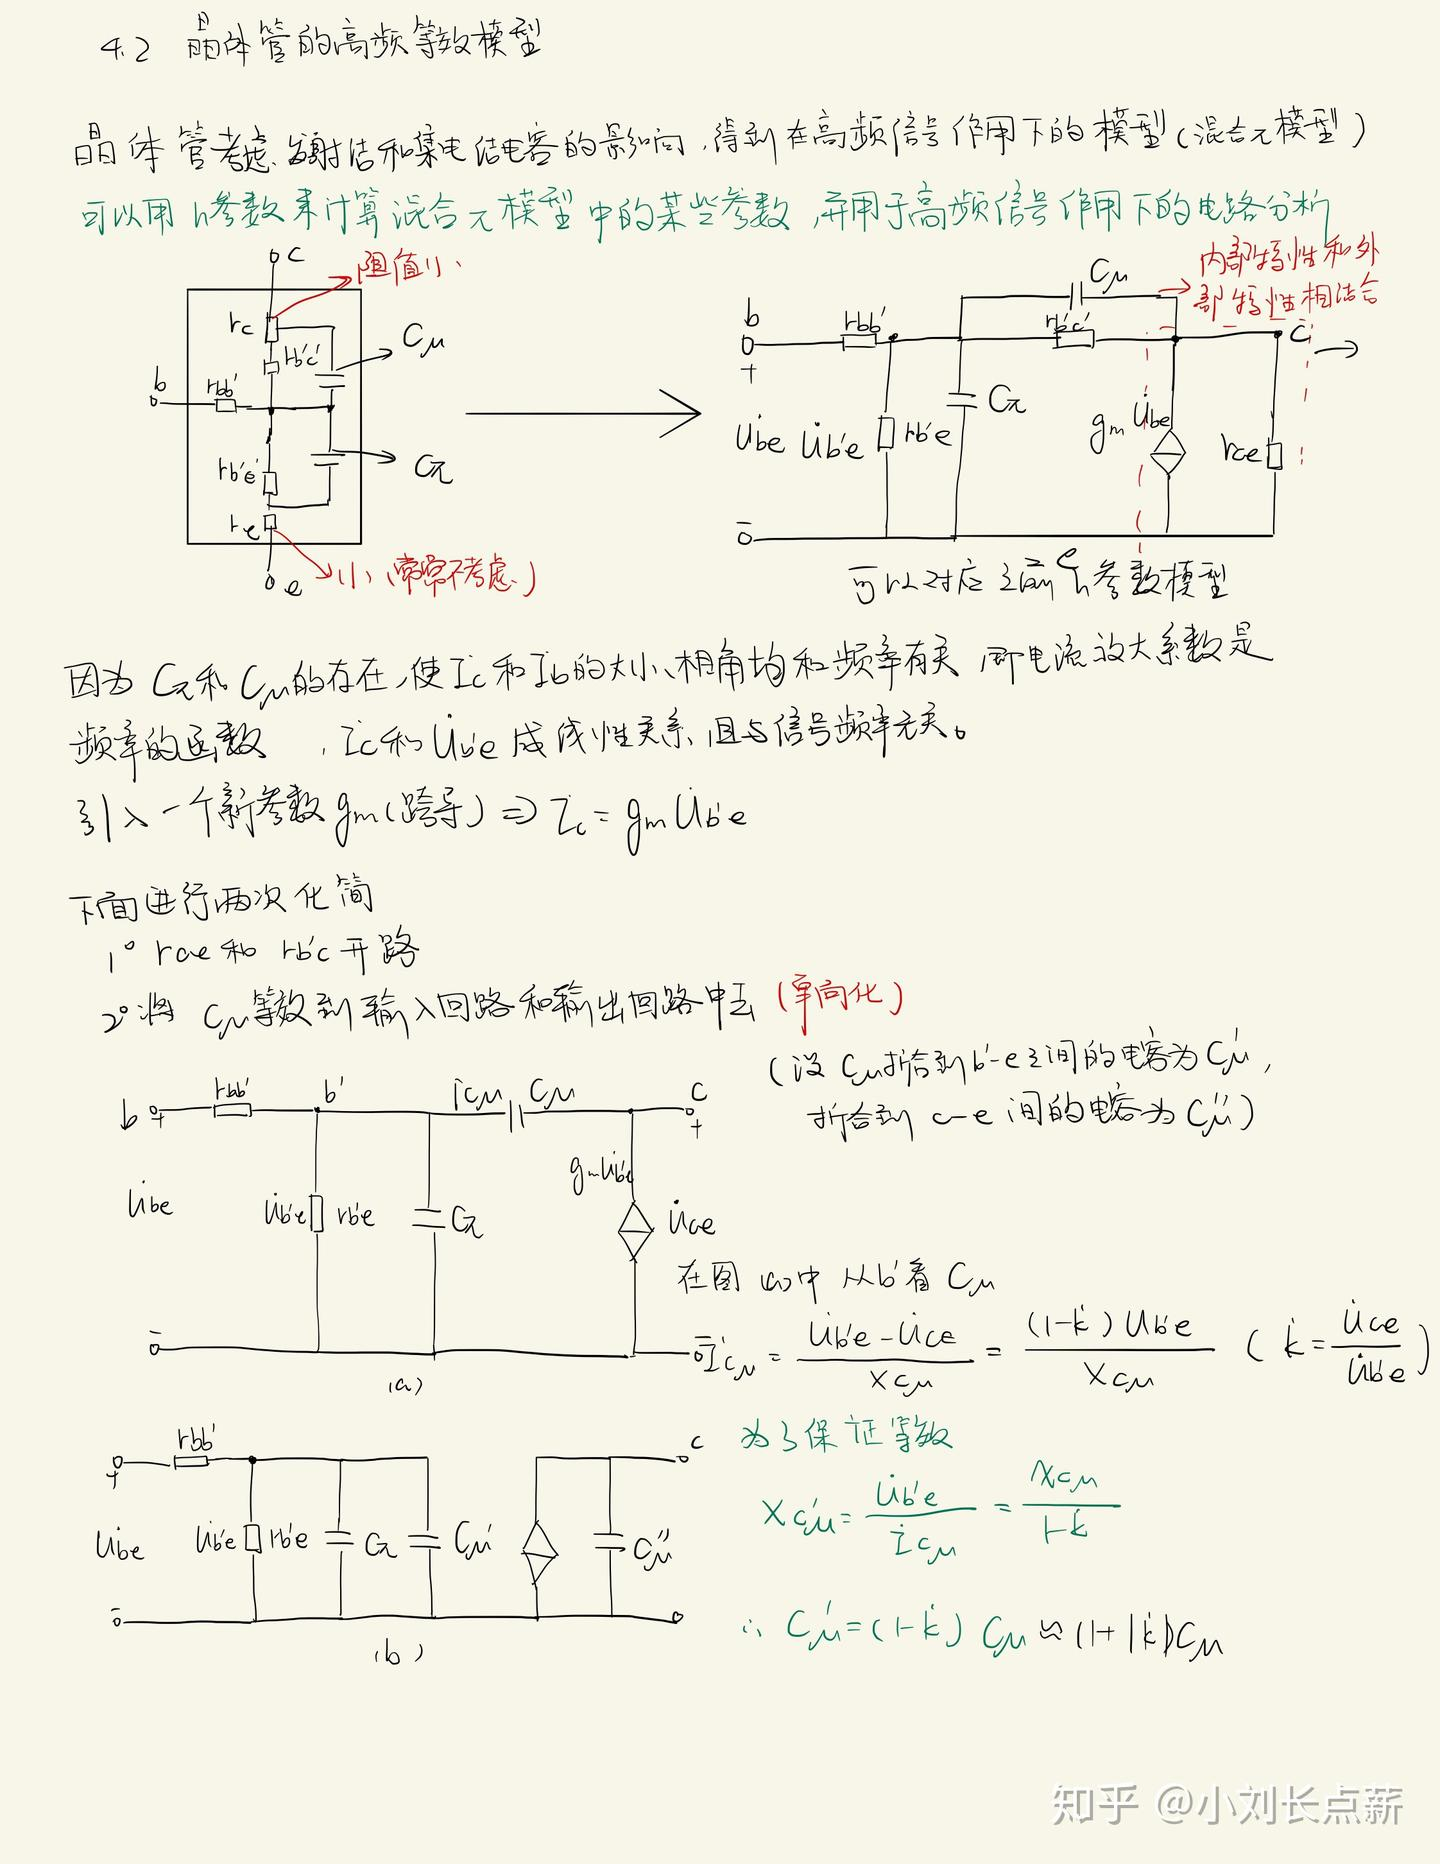 4.2 晶体管的高频等效模型
晶体管考虑发射结和集电结电容的影响,得到在高频信号作用下的模型(混合π模型)
可以用h参数来计算混合π模型中的某些参数,并用于高频信号作用下的电路分析
c
阻值小
rc
rb'c'
Cμ
b
rbb'
rb'e'
Cπ
re
小(常常不考虑)
e
内部特性和外
部特性相结合
Cμ
b
rbb'
rb'c'
c
+
U̇be
U̇b'e
rb'e
Cπ
gm U̇b'e
rce
−
e
可以对应之前h参数模型
因为Cπ和Cμ的存在,使İc和İb的大小、相角均和频率有关,即电流放大系数是
频率的函数,İc和U̇b'e成线性关系,且与信号频率无关。
引入一个新参数gm(跨导)⇒İc=gmU̇b'e
下面进行两次化简
1° rce和rb'c开路
2°将Cμ等效到输入回路和输出回路中去(单向化)
(设Cμ折合到b'-e之间的电容为Cμ',
折合到c-e间的电容为Cμ'')
b
+
rbb'
b'
İcμ
Cμ
c
+
U̇be
U̇b'e
rb'e
Cπ
gmU̇b'e
U̇ce
−
−
(a)
在图(a)中从b'看Cμ
İ'cμ = (U̇b'e − U̇ce)/Xcμ = (1−k̇)Ub'e/Xcμ (k̇ = U̇ce/U̇b'e)
为了保证等效
Xcμ' = U̇b'e/İcμ = Xcμ/(1−k̇)
∴ Cμ' = (1−k̇) Cμ ≈ (1+|k̇|)Cμ
rbb'
c
+
U̇be
U̇b'e
rb'e
Cπ
Cμ'
Cμ''
−
(b)
知乎 @小刘长点薪